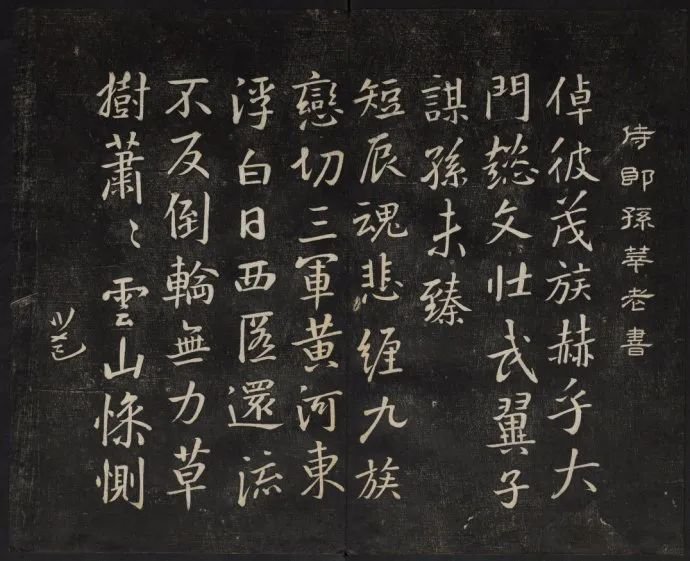 侍郎孫莘老書
倬彼茂族赫乎大
門懿文壯武翼子
謀孫未臻
短辰魂悲纏九族
戀切三軍黃河東
浮白日西匿還流
不反倒輪無力草
樹蕭〻雲山慘惻